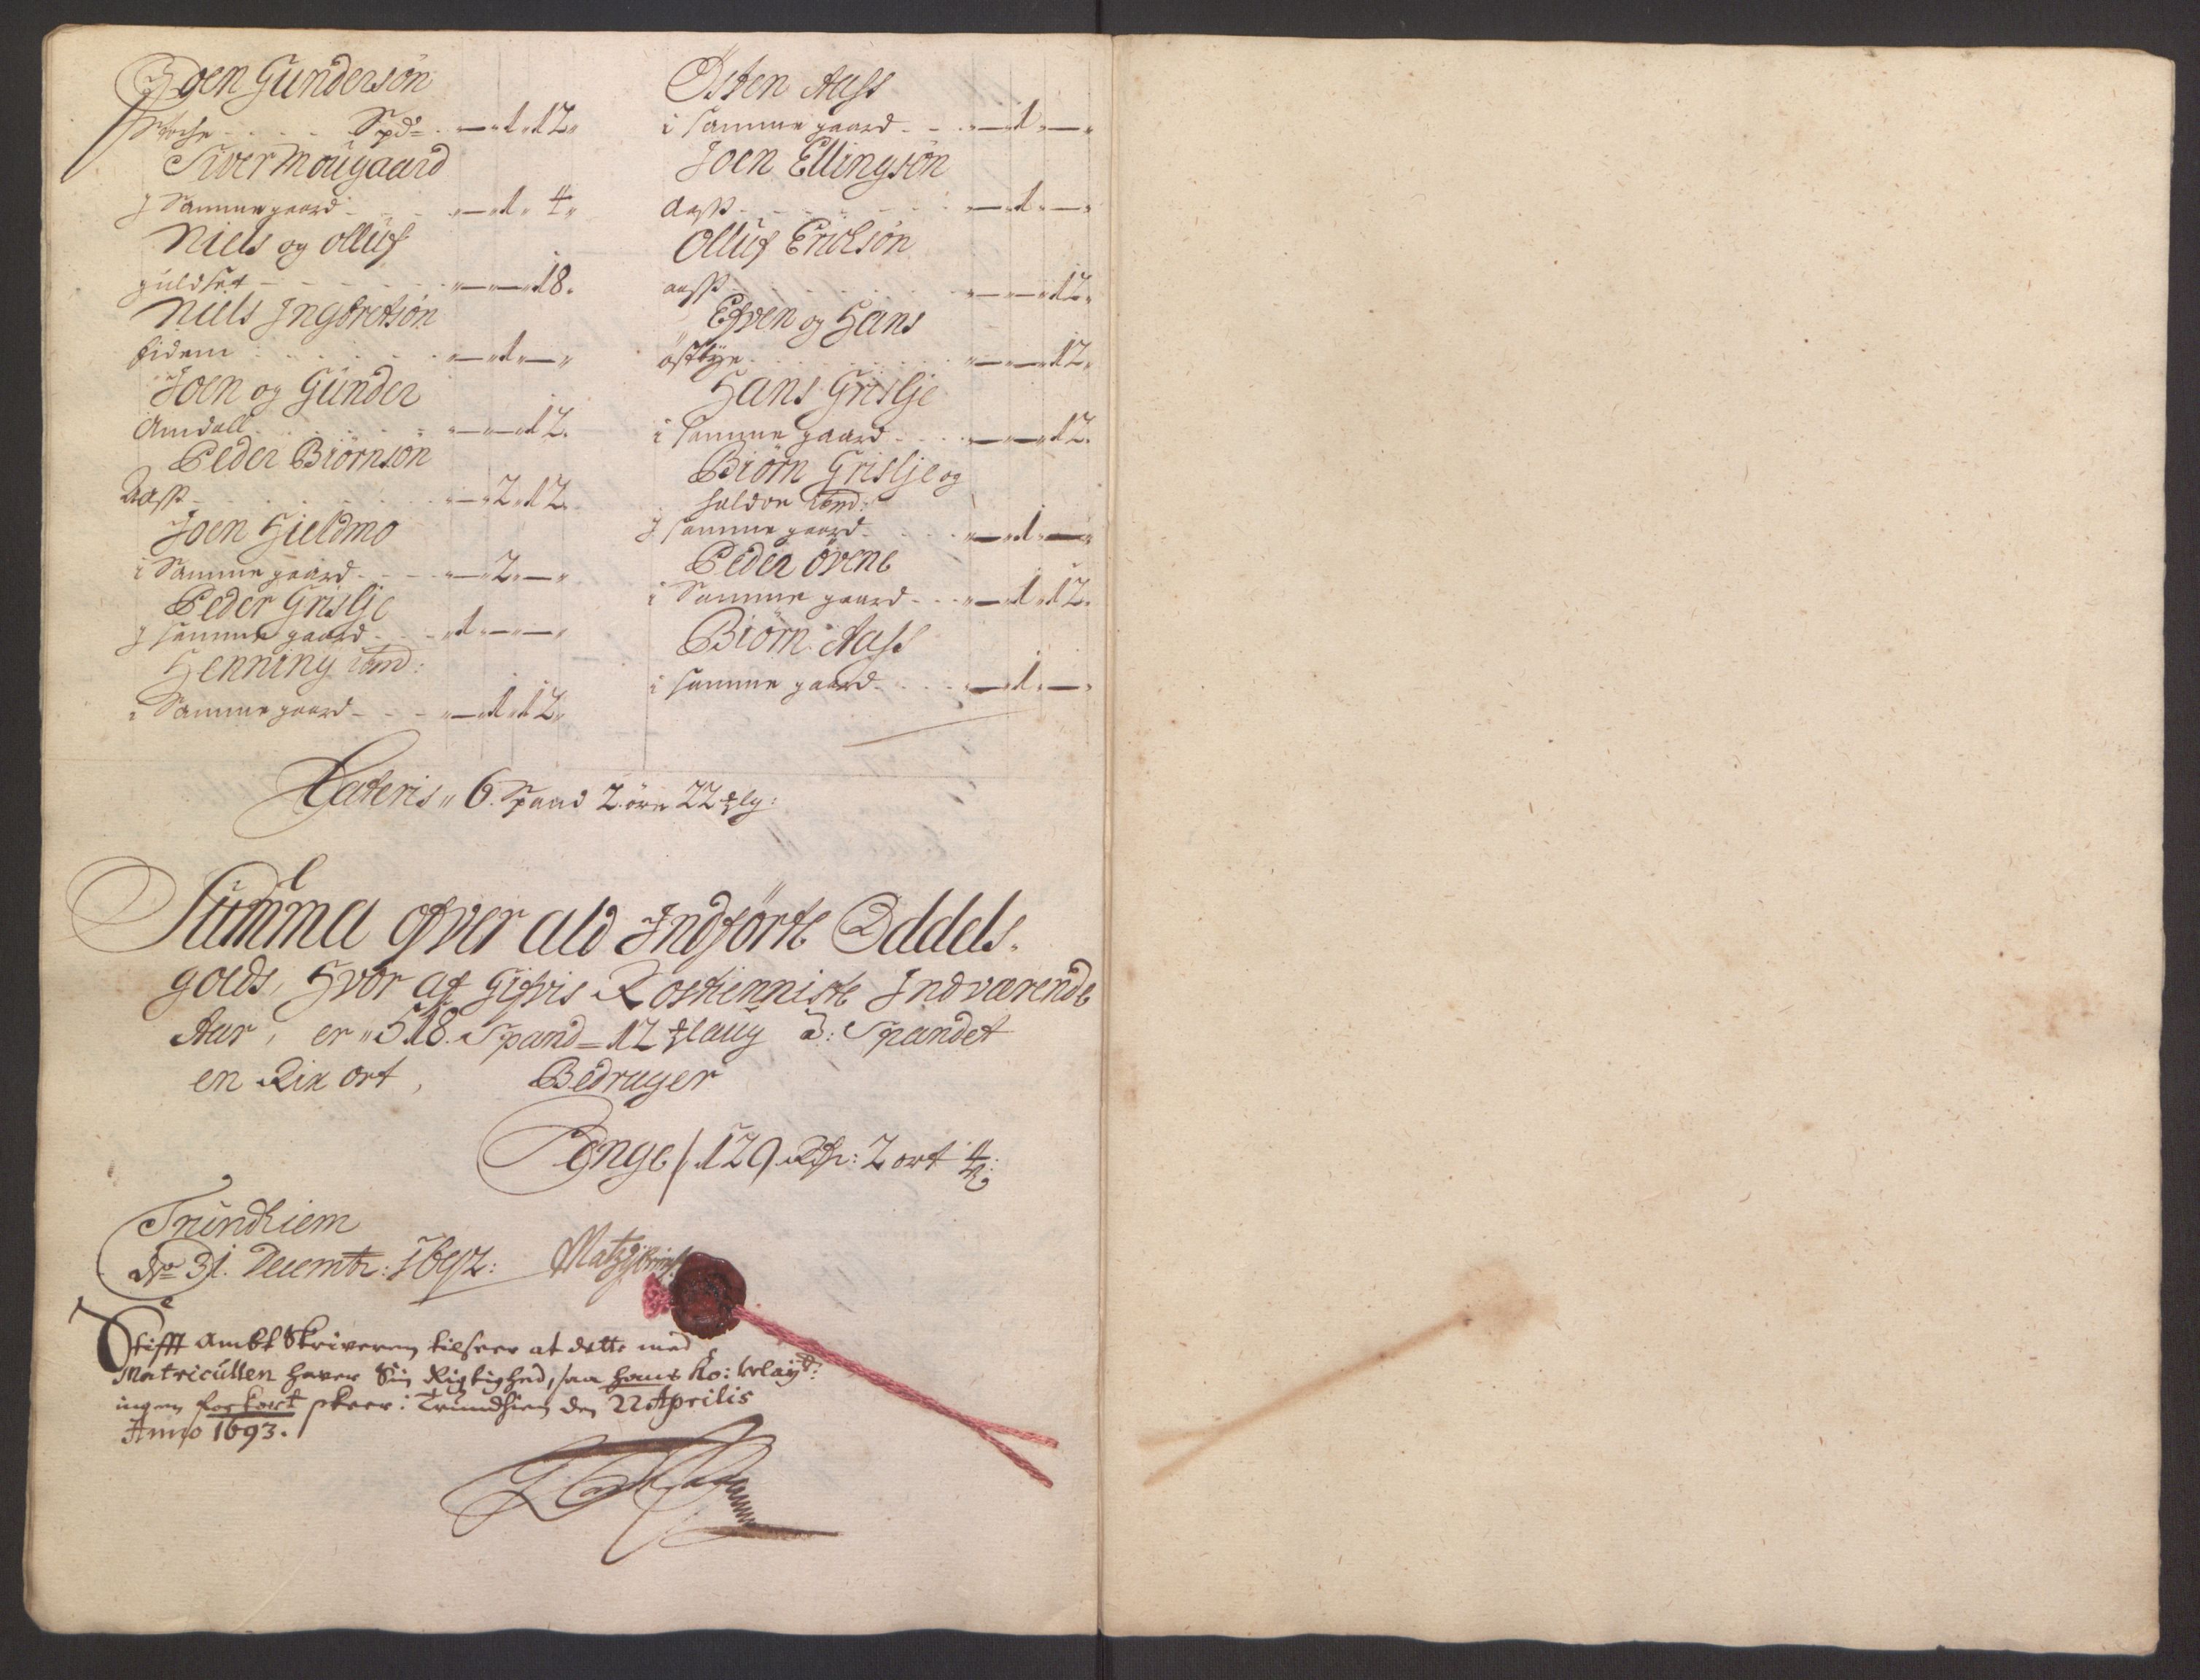 Joen Gundersøn
Spd - 1 - 12
Siver Mougaard
J Samme gaard - 1 - 4
Niels og Olluf
guldset - 18
Niels Ingbretsøn
Eidem - 1 -
Joen og Gunder
Amdall - 12
Peder Biørnsøn
Aass - 2 - 12
Joen Hieldmo
i Samme gaard - 2 -
Peder Grislje
J samme gaard - 1 - -
Henning
i Samme gaard - 1 - 12
Østen Aass
i samme gaard - 1 -
Joen Ellingsøn
Aass - 1 -
Olluf Erichsøn
aass - 12
Efven og Hans
østbye - 12
Hans Grislje
i samme gaard - 12
Biørn Grislje og
haldor
J samme gaard - 1 -
Peder øvene
i Samme gaard - 1 - 12
Biørn Aass
i samme gaard - 1 -
Lateris 6 Spand 2 øre 22 ℔lg:
Summa ofver ald Indførte Oddels-
goeds, Hvor af Gifvis Rostienniste Indværende
Aar, er 518 Spand - 12 ℔laug â: Spandet
en Rix ort, Bedrager
Penge / 129 Rdr: 2 ort 4 β:
Trundhiem
dn 31. Decembr: 1692:
Stifft Ambt Skriveren tilseer at dette med
Matricullen haver Sin Rigtighed, saa hans Ko: Maytz:
ingen forkort skeer: Trundhiem den 22 Aprilis
Anno 1693.